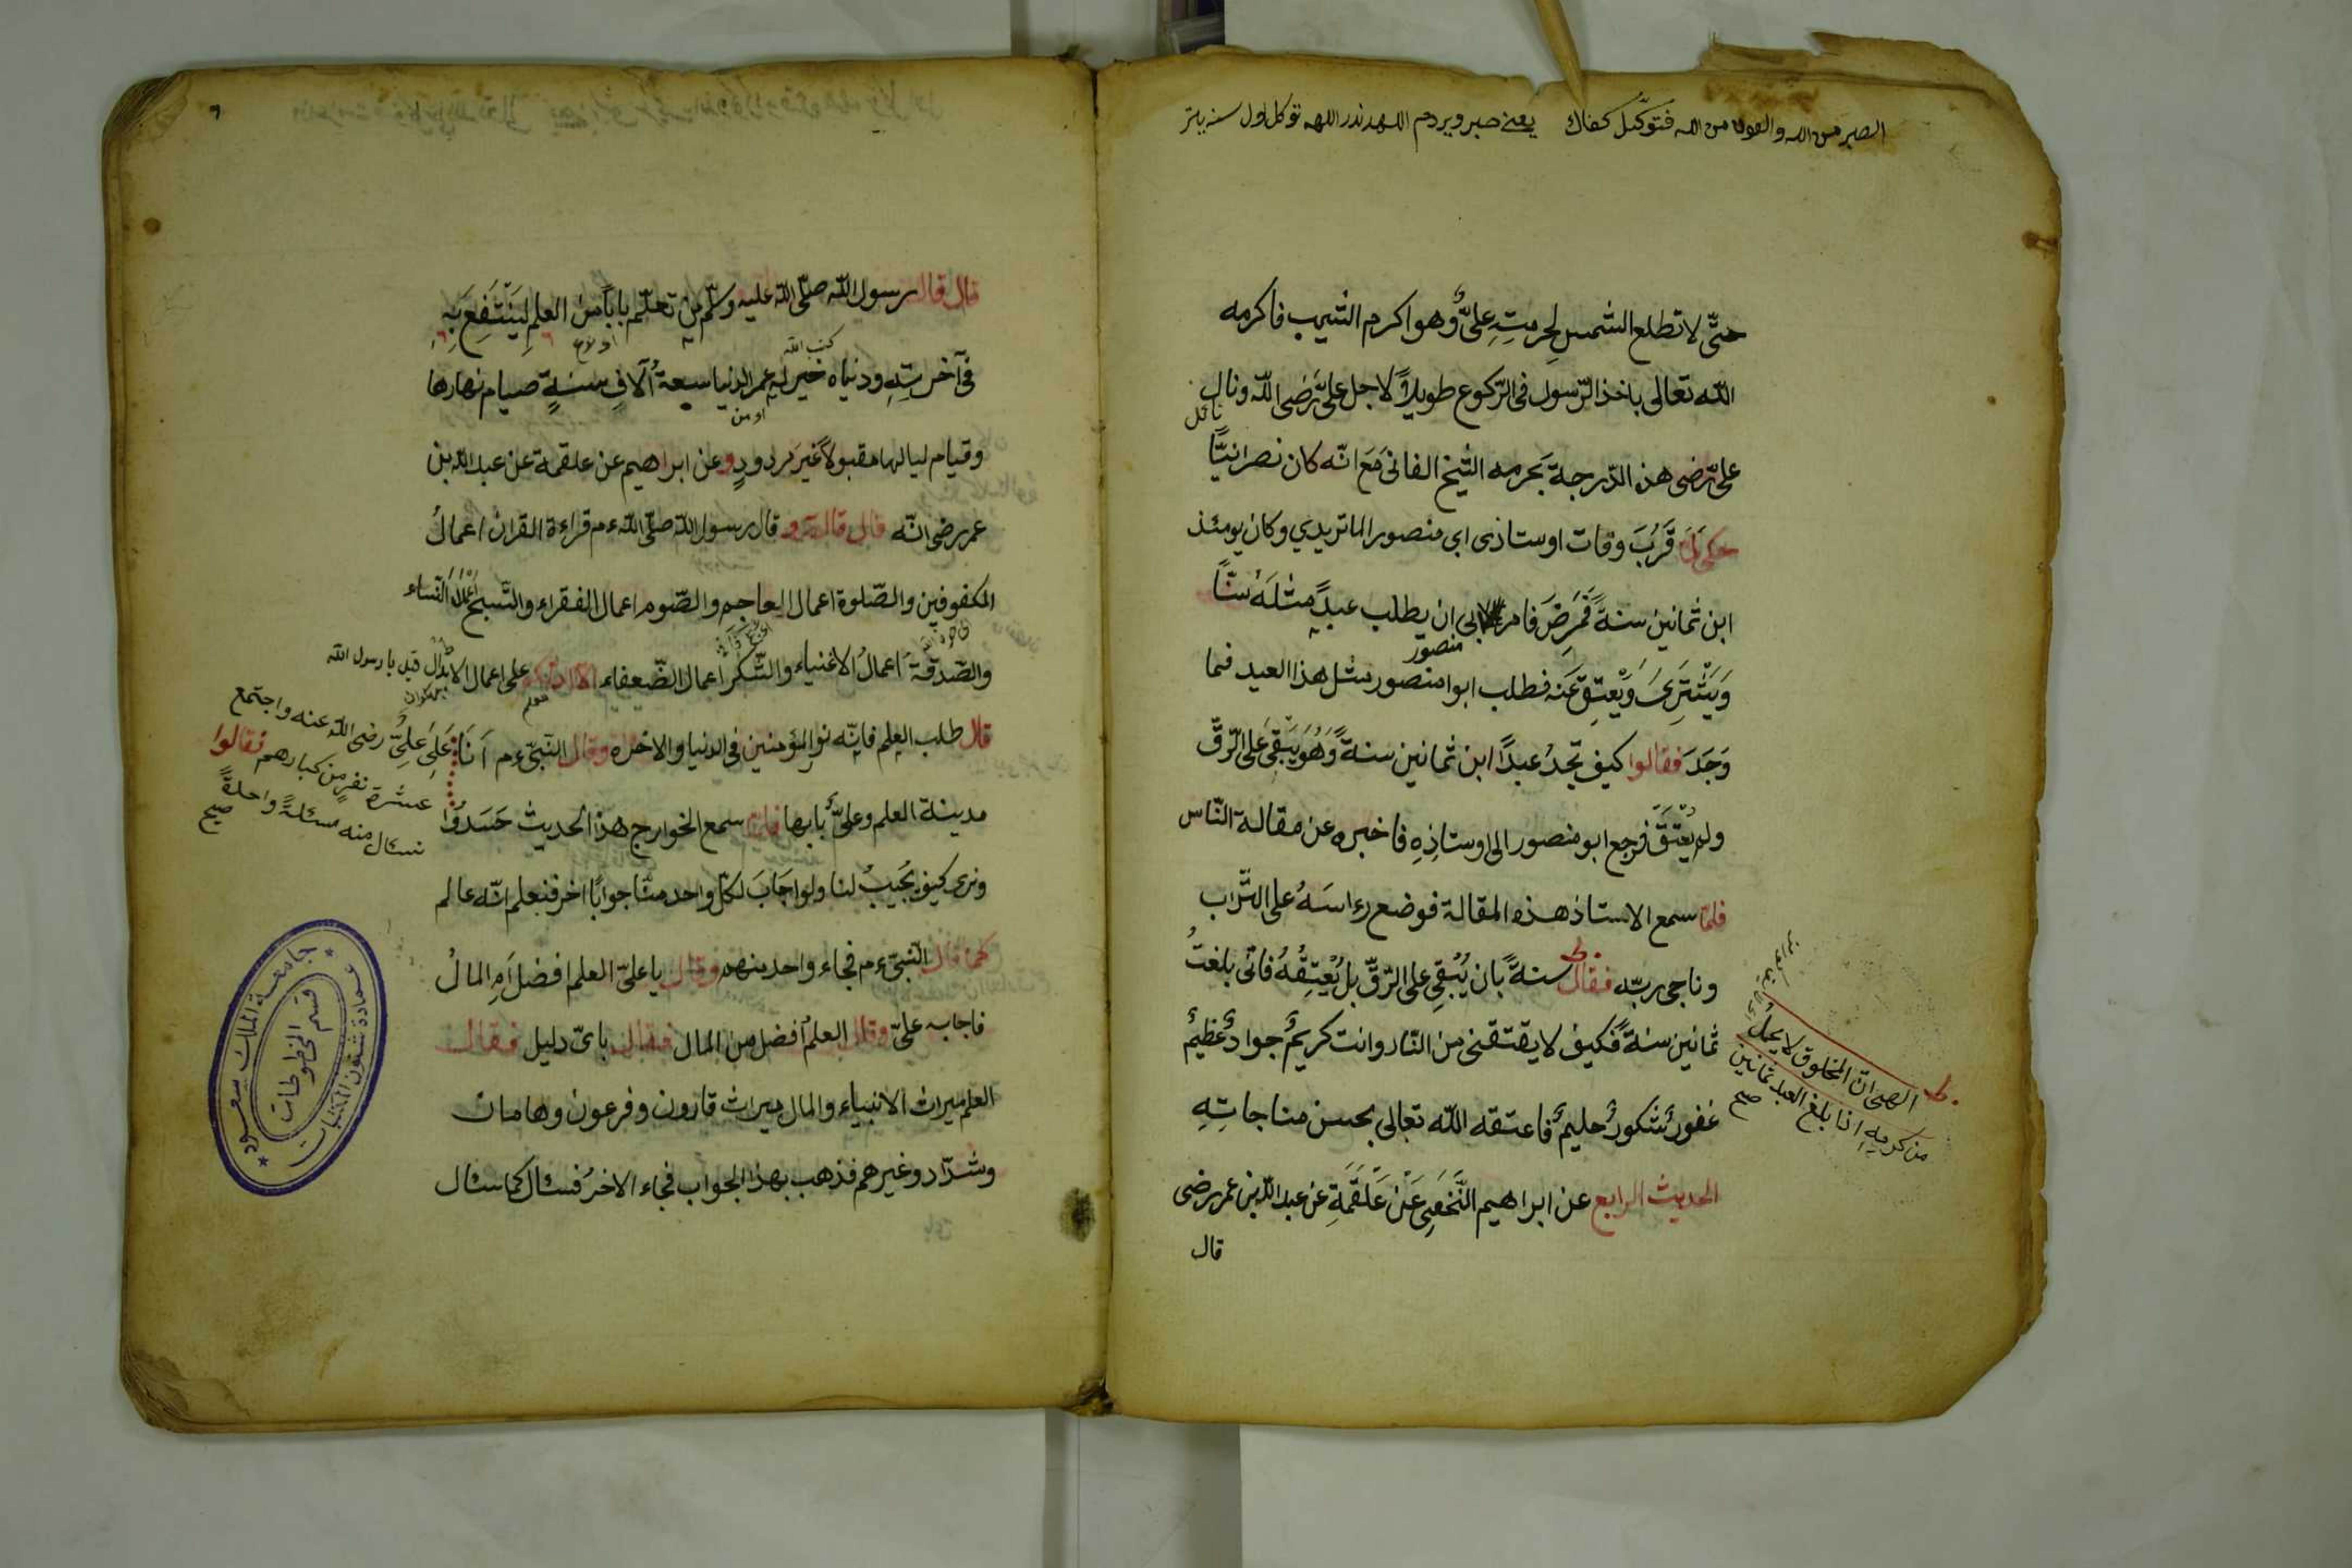 الصبر من الله والعون من الله فتوكل كفاك يعنى صبر ويردم اللهدندر اللهه توكل اول سنه يتر
حتّى لا تطلع الشمس لحرمتِهِ علىٌّ وهو اكرم الشيب فاكرمه
الله تعالى باخذ الرّسول فى الرّكوع طويلاً لاجل علىّ رضى اللّه ونال
نائل
علىّ رضى هذه الدّرجة بحرمه الشّيخ الفانى مَعَ انّه كان نصرانيّاً
حكى لَمَّا قَرُبَ وفات اوستاذى ابى منصور الماتريدي وكان يومئذ
ابن ثمانين سنةً فَمَرِضَ فامر لابى ان يطلب عبدًا مثلَهُ سنّاً
منصور
وَيَشْتَرِىَ وَيُعتِقَ عَنه فطلب ابوا منصور مثل هذا العبد فما
وَجَدَ فقالوا كيف تجدُ عبدًا ابن ثمانين سنةً وَهُوَ يَبْقى على الرّقّ
ولم يُعْتَقَ فرجع ابو منصور الى اوستاذِهِ فاخبره عن مقالة النّاس
فلمّا سمع الاستاذ هذه المقالة فوضع رءاسَهُ على التّراب
وناجى ربّه فقال سنةً بان يُبْقِى على الرّقّ بل يُعْتِقُهُ فانى بلغتُ
ثمانين سنةً فكيف لا يقتقنى من النّار وانت كريمٌ جوادٌ عظيمٌ
غفورٌ شكورٌ حليمٌ فاعتقه اللّه تعالى بحسن مناجاتِهِ
الحديث الرابع عن ابراهيم النَّخَعِى عَنْ عَلْقَمَةِ عن عبد اللّه بن عمر رضى
قال
الهى انّ المخلوق لا يحملُ
من كرمِهِ اذا بلغ العبد ثمانين
صح
قال قال رسول اللّه صلّى اللّه عليه وسلّم من تعلّم باباً من العلم لِيَنْتَفِعَ بِهِ
كتب الله
فى آخرتِهِ ودنياه خير له عمر الدنيا سبعةُ آلافِ سنةٍ صيام نهارها
او من
وقيام لياليها مقبولاً غيرَ مردودٍ وعن ابراهيم عن علقمة عن عبد اللّه بن
عمر رضى انّه قال قال قال رسول اللّه صلّى اللّه ءم قراءة القران اعمالُ
المكفوفين والصّلوة اعمال العاجم والصّوم اعمال الفقراء والتّسبيح اعمال النّساء
والصّدقة اعمالُ الاغنياء والتّفكر اعمال الضّعيفاء الا ادلّكم على اعمال الابدال قيل يا رسول الله
قال طلب العلم فانّه نور المؤمنين فى الدنيا والاخره وقال النّبىّ ءم اَنَا
مدينة العلم وعلىٌّ بابها فلمّا سمع الخوارج هذا الحديث حَسَدُوا
عَلَى عَلِىٍّ رضى اللّه عنه واجتمع
عشرة نفرٍ من كبارهم فقالوا
نسئال منه مسئلةً واحدةً
صح
ونرى كيف يُجيبُ لنا ولو اجَابَ لكلّ واحد منّا جوابًا اخر فنعلم انّه عالم
كما قال النّبىّ ءم فجاء واحد منهم وقال يا علىّ العلم افضل اَمِ المالُ
فاجابه علىّ وقال العلمُ افضل من المال فقال باىّ دليل فقال
العلم ميراث الانبياء والمال ميراث قارون وفرعون وهامان
وشدّاد وغيرهم فذهب بهذا الجواب فجاء الاخرُ فسئال كما سئال
جامعة الملك سعود
عمادة شئون المكتبات
قسم المخطوطات